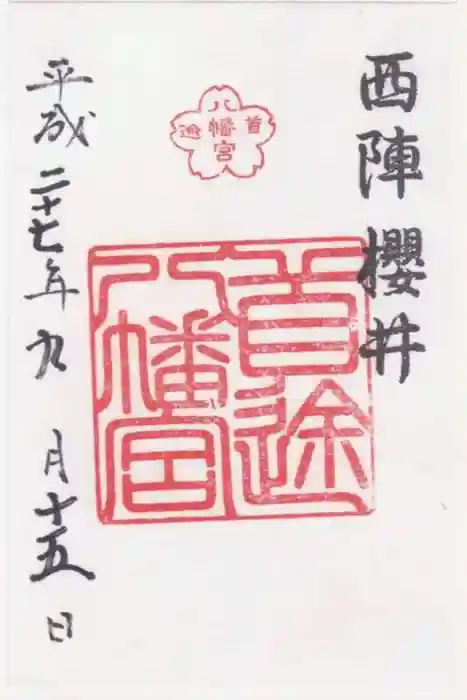 西陣 櫻井
首途
八幡宮
首途
八幡宮
平成二十七年九月十五日